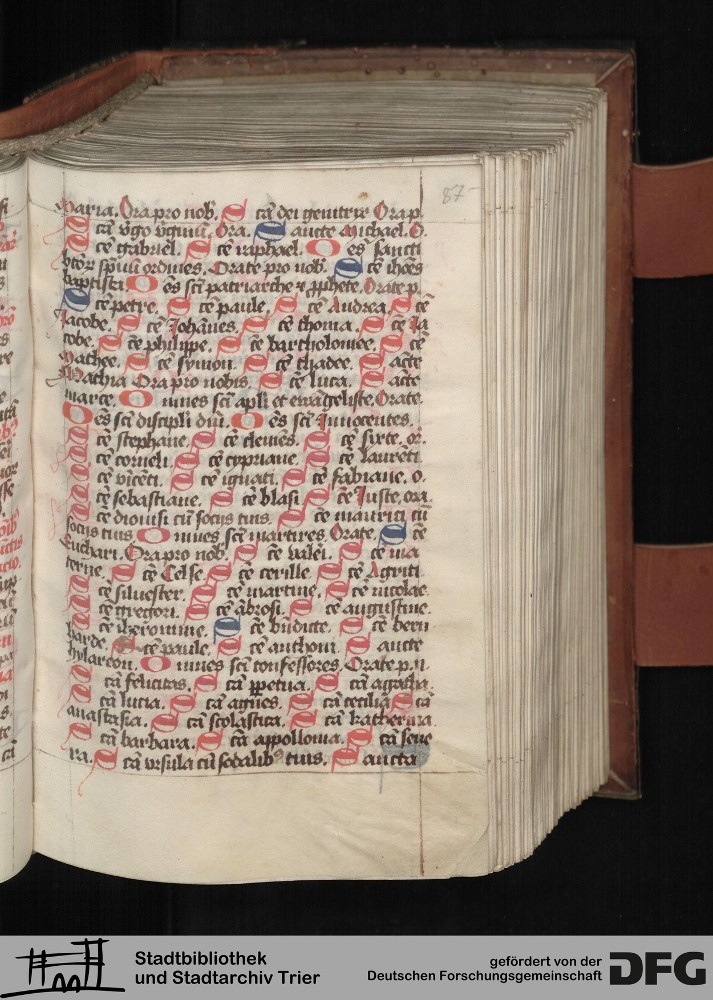 87
Maria. Ora pro nob̃. S cã dei genitrix Ora p.
S cã v̾go v̾ginũ. Ora. S ancte Michael. O.
S cẽ gabriel. S cẽ raphael. O ẽs sancti
btõꝝ sp̃uũ ordines. Orate pro nob̃. S cẽ ihões
baptista. O ẽs scĩ patriarche ⁊ ꝓphete. Orate p.
S cẽ petre. S cẽ paule. S cẽ Andrea. S cẽ
Jacobe. S cẽ Johãnes. S cẽ thoma. S cẽ Ja
cobe. S cẽ philippe. S cẽ bartholomee. S cẽ
Mathee. S cẽ symon. S cẽ thadee. S acte
Mathia Ora pro nobis. S cẽ luca. S acte
marce. O mnes scĩ apli et ewãgeliste. Orate.
O ẽs scĩ discipli dñi. O ẽs scĩ Innocentes.
S cẽ stephane. S cẽ clemẽs. S cẽ sixte. or.
S cẽ corneli. S cẽ cypriane. S cẽ laurẽti
S cẽ vicẽti. S cẽ ignati. S cẽ fabiane. o.
S cẽ sebastiane. S cẽ blasi S cẽ Iuste. ora.
S cẽ dionisi cũ socijs tuis. S cẽ mauriti cũ
socijs tuis O mnes scĩ martires. Orate. S cẽ
Euchari. Ora pro nob̃. S cẽ valeri. S cẽ ma
terne. S cẽ Celse. S cẽ cerille. S cẽ Agriti.
S cẽ siluester. S cẽ martine. S cẽ nicolae
S cẽ gregori. S cẽ ãbrosi. S cẽ augustine.
S cẽ iheronime. S cẽ bñdicte. S cẽ bern
harde. S cẽ paule. S cẽ anthoni. S ancte
hylarion. O mnes scĩ confessores. Orate p. n.
S cã felicitas. S cã ꝑpetua. S cã agatha.
S cã lucia. S cã agnes. S cã cecilia S cã
anastasia. S cã scolastica. S cã katherina.
S cã barbara. S cã appollonia. S cã seue
ra. S cã vrsula cũ sodalib⁹ tuis. S ancta
Stadtbibliothek
und Stadtarchiv Trier
gefördert von der
Deutschen Forschungsgemeinschaft
DFG